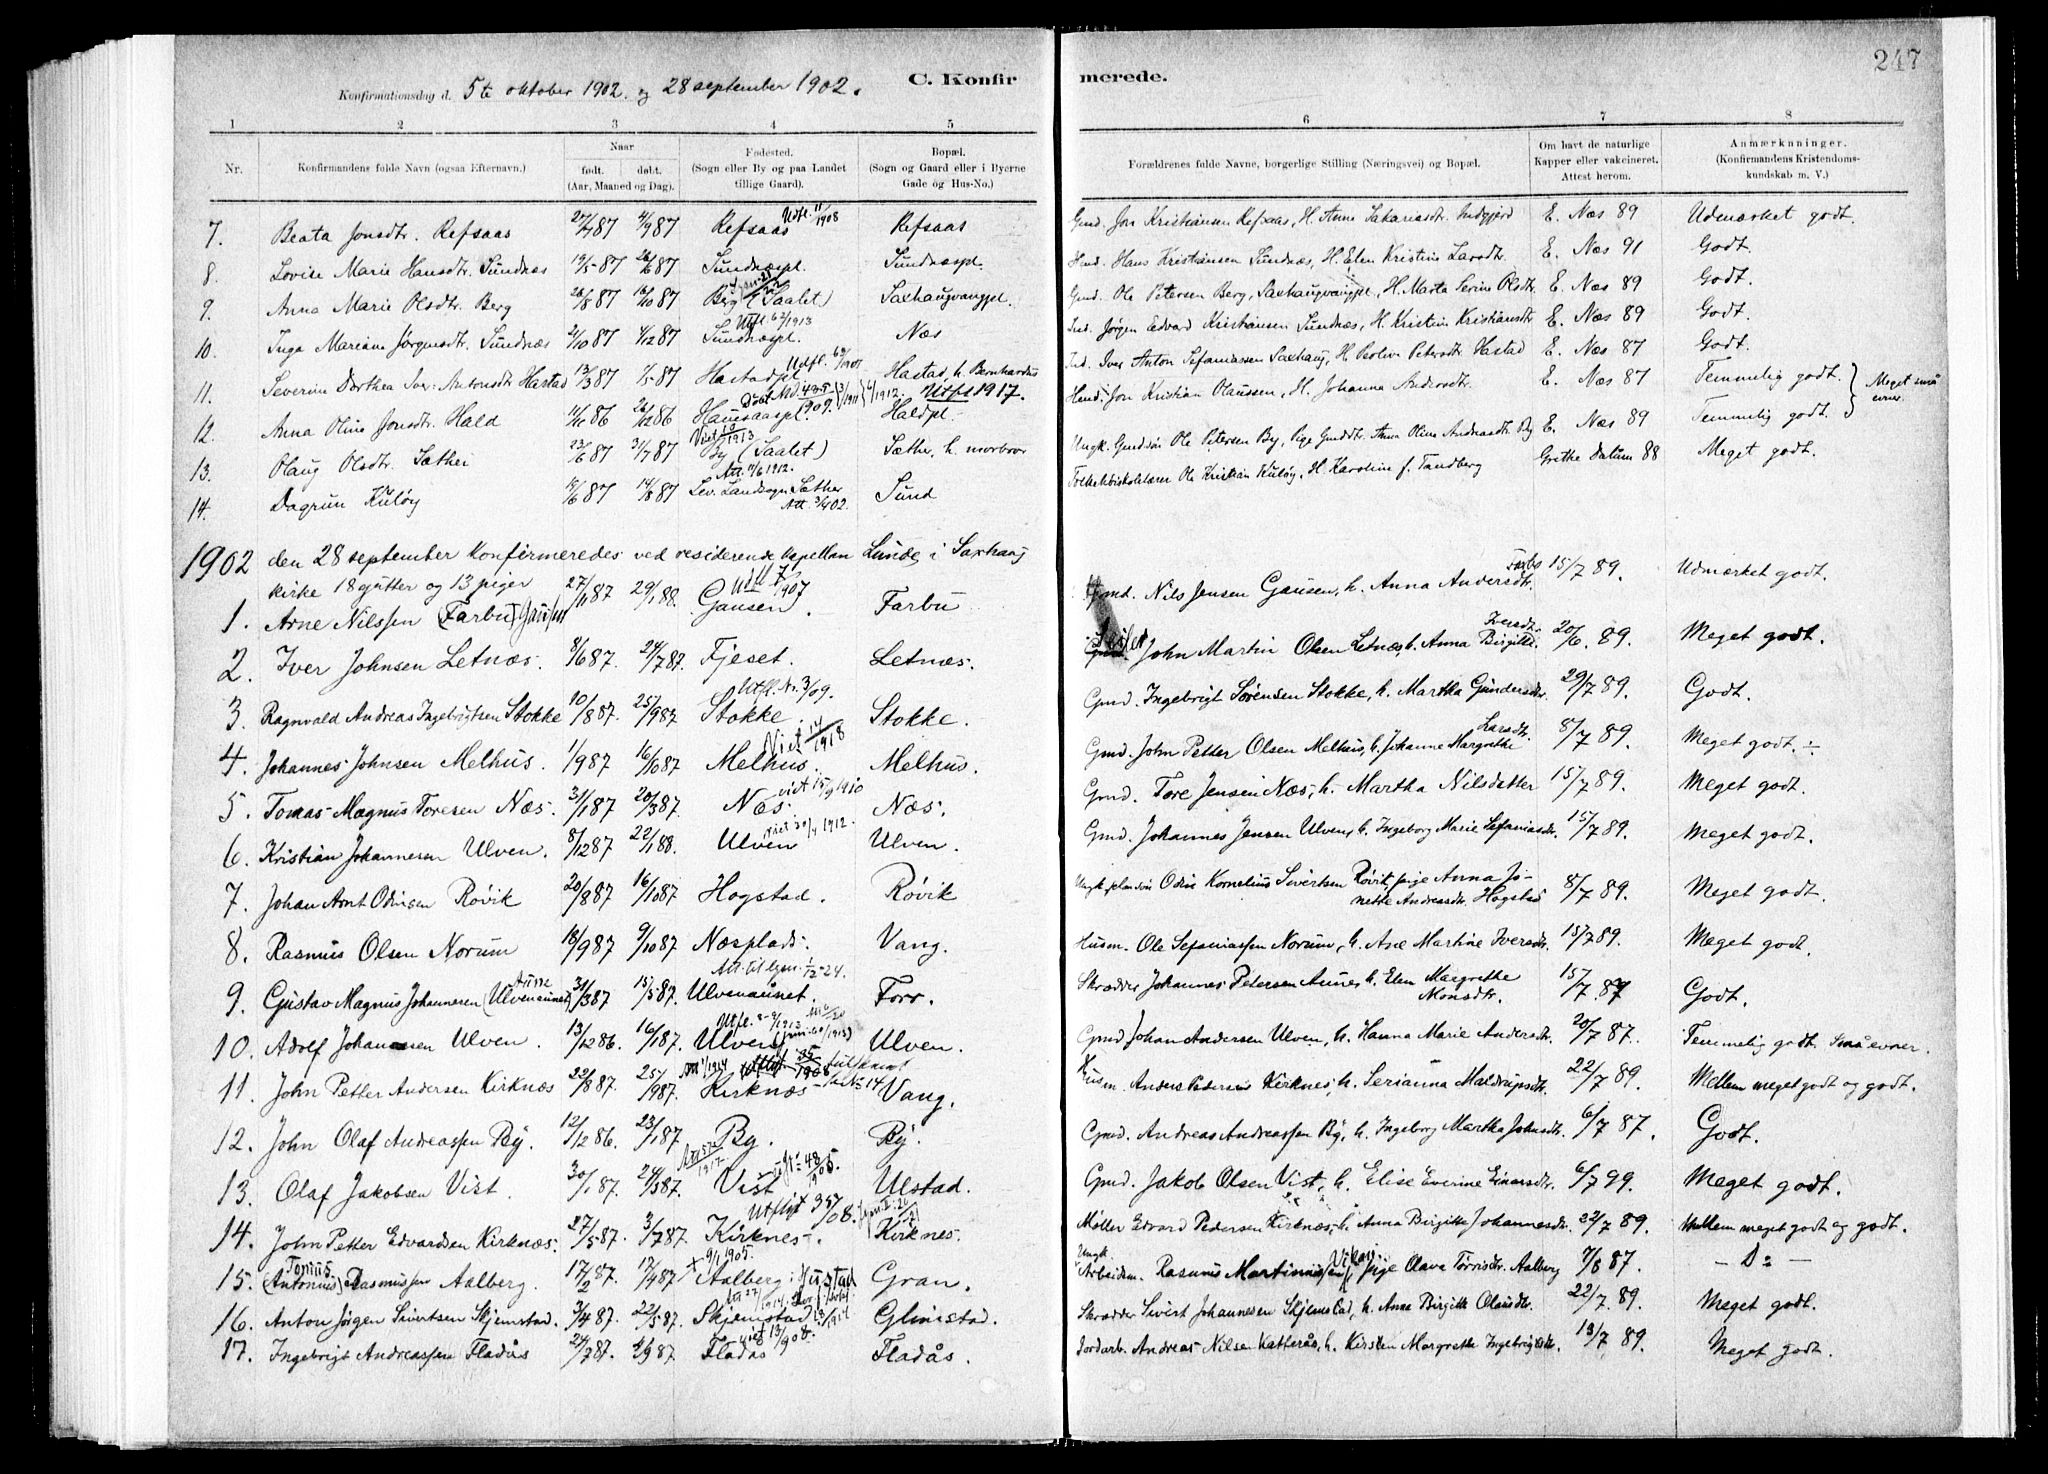 247
Konfirmationsdag d. 5te oktober 1902. og 28 september 1902. C. Konfirmerede.
1 2 3 4 5 6 7 8
Nr. Konfirmandens fulde Navn (ogsaa Efternavn.) Naar født. døbt. (Aar, Maaned og Dag). Fødested. (Sogn eller By og paa Landet tillige Gaard). Bopæl. (Sogn og Gaard eller i Byerne Gade og Hus-No.) Forældrenes fulde Navne, borgerlige Stilling (Næringsvei) og Bopæl. Om havt de naturlige Kapper eller vakcineret. Attest herom. Anmærkninger. (Konfirmandens Kristendomskundskab m. V.)
7. Beata Jonsdtr. Refsaas 27/7 87 4/9 87 Refsaas Udfl. 11/1908 Refsaas Gmd. Jon Kristiansen Refsaas, H. Anne Sakariasdtr. E. Næs 89 Udmærket godt.
8. Lovise Marie Hansdtr. Sundnæs 19/5 87 26/6 87 Sundnæspl. Sundnæspl. Hmd. Hans Kristiansen Sundnæs, H. Elen Kristine Larsdtr. E. Næs 91 Godt.
9. Anna Marie Olsdtr. Berg 26/8 87 16/10 87 Berg (Saalet) Saxhaugvangpl. Gmd. Ole Petersen Berg, Saxhaugvangpl., H. Marta Serine Olsdtr. E. Næs 89 Godt.
10. Inga Mariane Jørgensdtr. Sundnæs 2/10 87 4/12 87 Sundnæspl. Utfl. 62/1913 Næs Ind. Jørgen Edvard Kristiansen Sundnæs, H. Kristin Kristiansdtr. E. Næs 89 Godt.
11. Severine Dorthea Iver-Antonsdtr Hastad 13/3 87 1/5 87 Hastadpl. Hastad, h. Bernhardus Ind. Iver Anton Sefaniassen Saxhaug, H. Petersdtr. Hastad E. Næs 87 Godt.
12. Anna Oline Jonsdtr. Hald 11/11 86 26/12 86 Utfl 1917. Haldpl. Hmd. Jon Kristian Olaussen, H. Johanna Andersdtr. E. Næs 87 Temmelig godt. Meget små evner
13. Olaug Olsdtr. Sæther 23/6 87 31/7 87 By (Saalet) Viet 10/1913 Sæther, h. morbror Ungk. Gmdsøn Ole Petersen By, Pige Gmddtr. Anna Oline Andreasdtr By E. Næs 89 Temmelig godt.
14. Dagrun Kuløy 17/6 87 14/8 87 Lev. Landsogn Sæther Att. 11/6 1912. Att. 3/4 02. Sund Ole Kristian Kuløy, H. Karoline f. Tandberg Grethe Dalum 88 Meget godt.
1902 den 28 september konfirmeredes ved residerende kapellan Lunde i Saxhaug
kirke 18 gutter og 13 piger
1. Arne Nilssen (Farbu) Gausen 27/11 87 29/1 88. Gausen. Farbu Gmd. Nils Jensen Gausen, h. Anna Andersdtr. 15/7 89. Udmærket godt.
2. Iver Johnsen Letnæs. 8/6 87. 24/7 87. Fjeset. Letnæs. John Martin Olsen Letnæs, h. Anna Birgitte Iversdtr. 20/6. 89. Meget godt.
3. Ragnvald Andreas Ingebrigtsen Stokke 10/8 87. 25/9 87. Stokke. Utfl. Nr. 3/09. Stokke. Gmd. Ingebrigt Sørensen Stokke, h. Martha Gundersdtr. 29/7 89. Godt.
4. Johannes Johnsen Melhus. 1/9 87 16/10 87 Melhus. Viet 14/1918 Melhus. Gmd. John Petter Olsen Melhus, h. Johanne Margrethe Larsdtr. 8/7 89. Meget godt. ÷
5. Tomas Magnus Toresen Næs. 31/1 87 20/3 87. Næs. viet 15/9 1910 Næs. Gmd. Tore Jensen Næs, h. Martha Nilsdatter 15/7 89. Meget godt.
6. Kristian Johannesen Ulven. 8/12 87 22/1 88. Ulven viet 30/4 1912. Ulven. Gmd. Johannes Jensen Ulven, h. Ingeborg Marie Sefaniasdtr. 15/7 89. Meget godt.
7. Johan Arnt Odinsen Røvik 20/8 87 16/10 87 Hogstad. Røvik Odin Kornelius Sivertsen Røvik, pige Anna Jonette Andreasdtr. Hogstad 8/7 89. Meget godt.
8. Rasmus Olsen Norum 18/9 87. 9/10 87. Næsplads. Vang. Husm. Ole Sefaniassen Norum, h. Ane Martine Iversdtr. 15/7 89. Meget godt.
9. Gustav Magnus Johannesen (Ulvenaunet) Aune 31/3 87 15/5 87. Ulvenaunet. Att. til lysn. 1/12-24. Forr. Skrædder Johannes Petersen Aune, h. Elen Margrethe Monsdtr. 15/7 87 Godt.
10. Adolf Johansen Ulven. 13/12 86. 16/1 87. Ulven Ulven. Gmd Johan Andersen Ulven, h. Hanna Marie Andersdtr. 20/7 87. Temmelig godt. Små evner.
11. John Petter Andersen Kirknæs 22/8 87. 25/9 87. Kirknæs Vang. Husm. Anders Pedersen Kirknes, h. Serianna Maldrupsdtr. 22/7 89. Mellem meget godt og godt.
12. John Olaf Andreassen By. 12/12 86. 23/1 87. By. By. Gmd. Andreas Andreassen By, h. Ingeborg Martha Johnsdtr. 6/7 87. Godt.
13. Olaf Jakobsen Vist. 30/1 87. 24/3 87. Vist Utfl. 48/1905. Ulstad. Gmd. Jakob Olsen Vist, h. Elise Everine Einarsdtr. 6/7 99. Meget godt.
14. John Petter Edvardsen Kirknæs. 27/5 87. 3/7 87. Kirknes. Utflyt 357/08. Kirknes. Møller Edvard Pedersen Kirknæs, h. Anna Birgitte Johannesdtr. 22/7 89. Mellem meget godt og godt.
15. (Antonius) Tonius Rasmussen Aalberg. 17/2 87. 17/4 87. Aalberg i Hustad + 9/1 1905. Gran. Ungk. Arbeidsm. Rasmus Martinussen Vikan, pige Olava Tørrisdtr. Aalberg 7/8 87. – Do –
16. Anton Jørgen Sivertsen Skjemstad. 3/4 87. 22/5 87. Skjemstad Glimstad. Skrædder Sivert Johannesen Skjemstad, h. Anna Birgitte Olausdtr. 22/7 89. Meget godt.
17. Ingebrigt Andreassen Fladås 24/7 87. 4/9 87. Fladås viet 13/1908. Fladås. Jordarb. Andreas Nilsen Katterås, h. Kirsten Margrethe Ingebrigtsdtr. 13/7 89. Meget godt.